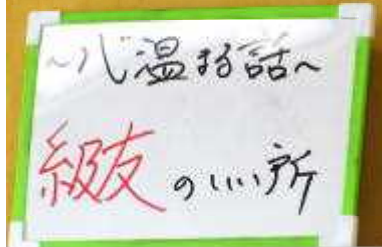 ～心温まる話～
級友のいい所